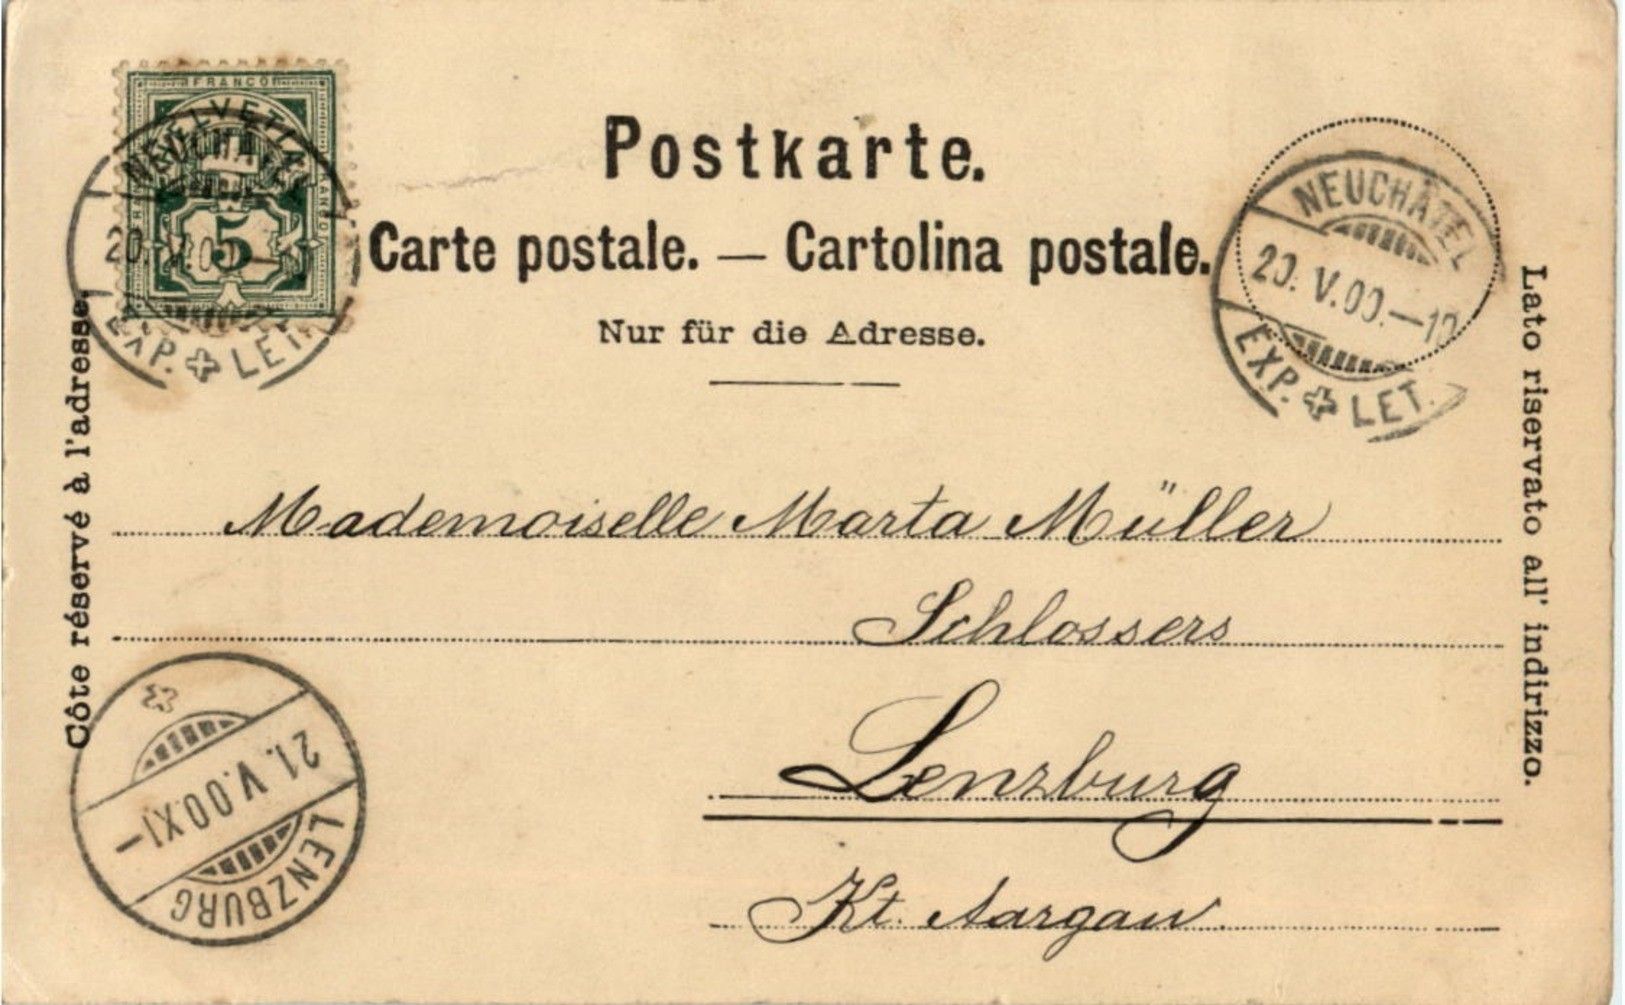 FRANCO
HELVETIA
5
NEUCHÂTEL
20.V.00.—
EXP. LET.
Postkarte.
Carte postale. — Cartolina postale.
Nur für die Adresse.
NEUCHÂTEL
20.V.00.—12
EXP. LET.
Côte réservé à l'adresse.
Lato riservato all' indirizzo.
Mademoiselle Marta Müller
Schlossers
Lenzburg
Kt. Aargau
21.V.00.XI—
LENZBURG